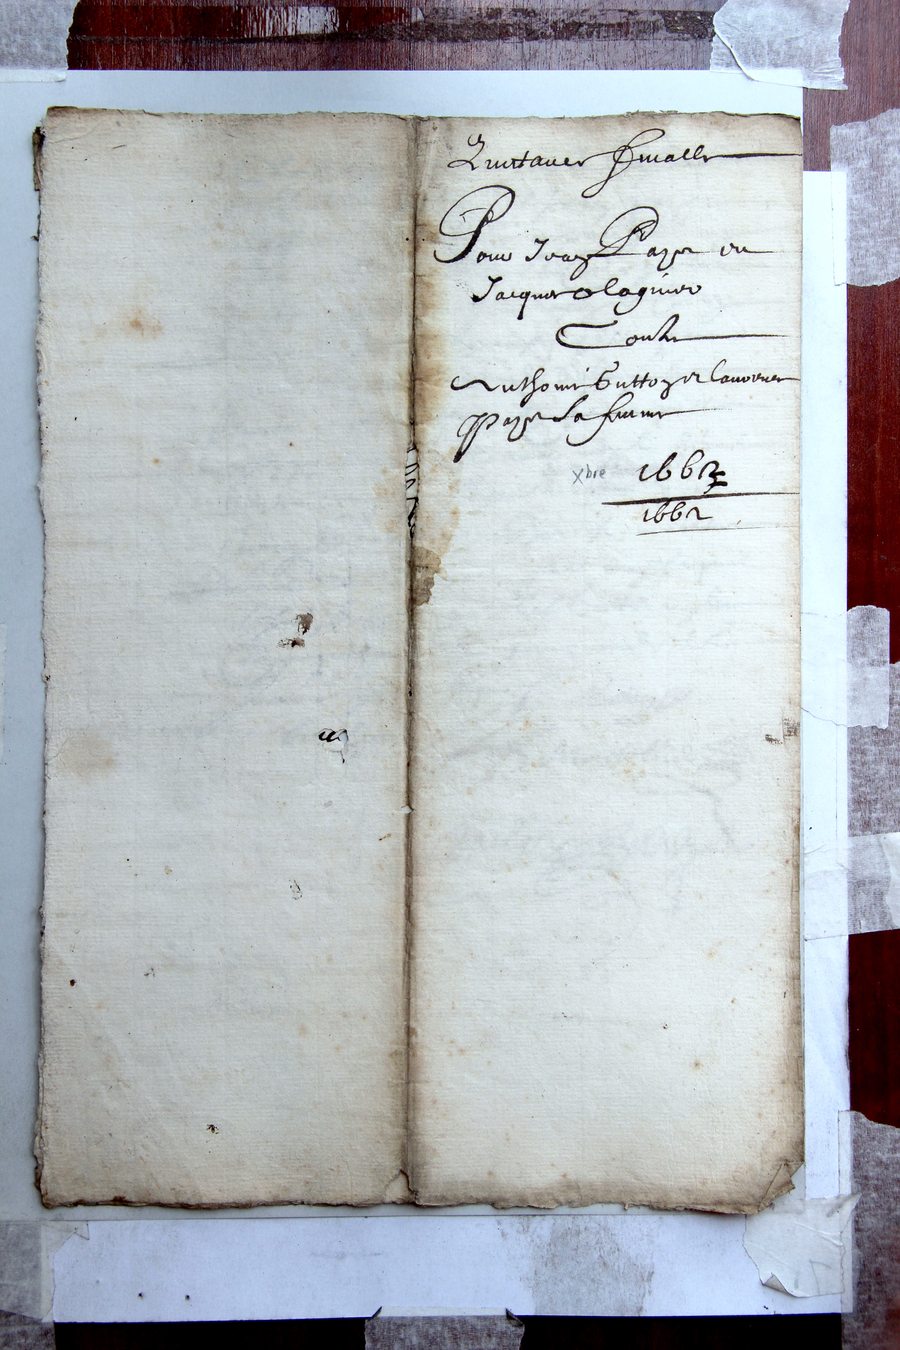 Quittance finalle
Pour Jean Page et
Jacques Blagnier
Contre
Anthoine et Laurence
Page sa femme
xbre 1662
1662